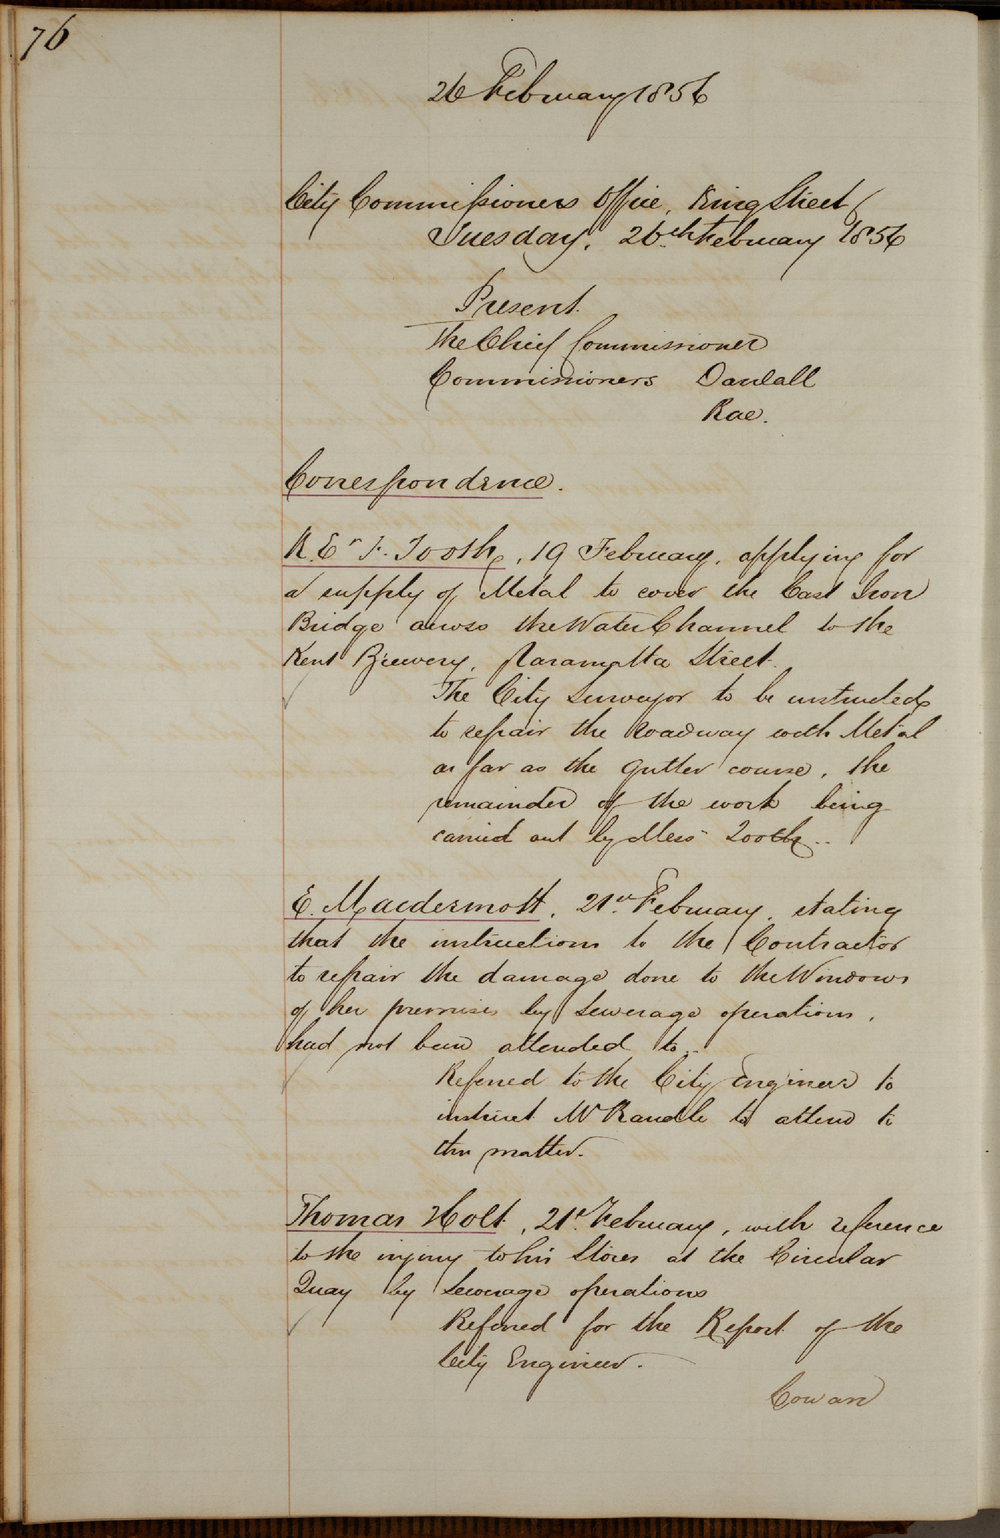 76
26 February 1856
City Commissioners Office, King Street,
Tuesday, 26th February 1856
Present
The Chief Commissioner
Commissioners Darvall
Rae.
Correspondence.
R. E & F. Tooth, 19 February, applying for
a supply of Metal to cover the Cast Iron
Bridge across the Water Channel to the
Kent Brewery, Paramatta Street.
The City Surveyor to be instructed
to repair the Roadway with Metal
as far as the gutter course, the
remainder of the work being
carried out by Mess Tooth..
E. Macdermott, 21st February, stating
that the instructions to the Contractor
to repair the damage done to the Windows
of her premises by Sewerage operations,
had not been attended to..
Referred to the City Engineer to
instruct Mr Randle to attend to
this matter.
Thomas Holt, 21st February, with reference
to the injury to his Stores at the Circular
Quay by Sewerage operations
Referred for the Report of the
City Engineer.
Cowan